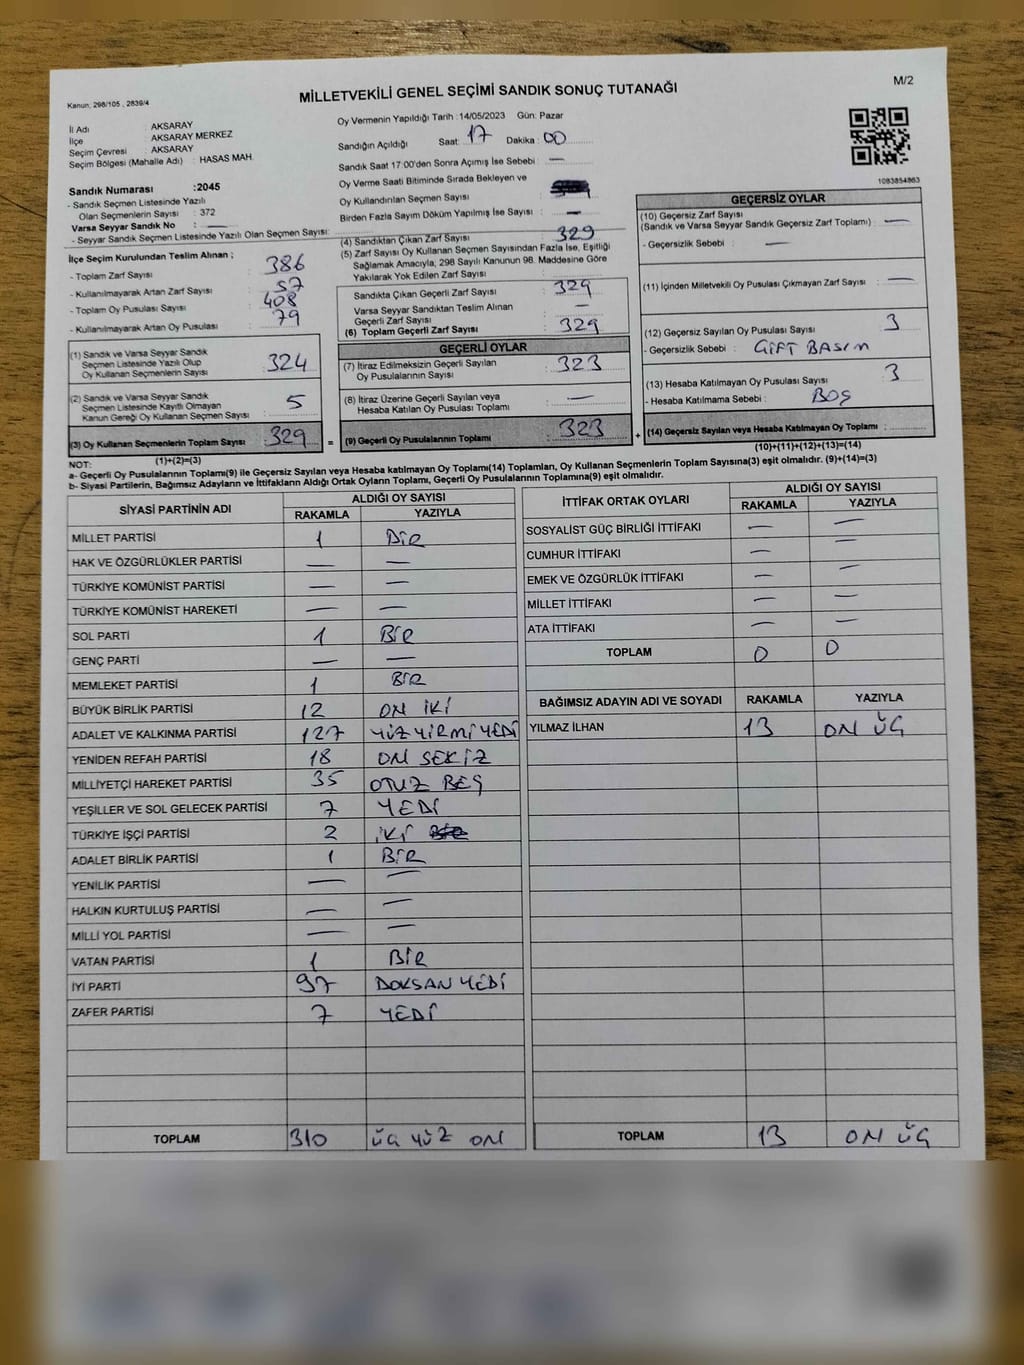 M/2
Kanun; 298/105 , 2839/4
MİLLETVEKİLİ GENEL SEÇİMİ SANDIK SONUÇ TUTANAĞI
İl Adı : AKSARAY
İlçe : AKSARAY MERKEZ
Seçim Çevresi : AKSARAY
Seçim Bölgesi (Mahalle Adı) : HASAS MAH.
Sandık Numarası :2045
- Sandık Seçmen Listesinde Yazılı
Olan Seçmenlerin Sayısı : 372
Varsa Seyyar Sandık No : —
- Seyyar Sandık Seçmen Listesinde Yazılı Olan Seçmen Sayısı:
Oy Vermenin Yapıldığı Tarih :14/05/2023 Gün: Pazar
Sandığın Açıldığı Saat: 17 Dakika : 00
Sandık Saat 17:00'den Sonra Açımış İse Sebebi : —
Oy Verme Saati Bitiminde Sırada Bekleyen ve
Oy Kullandırılan Seçmen Sayısı :
Birden Fazla Sayım Döküm Yapılmış İse Sayısı : —
1083854863
İlçe Seçim Kurulundan Teslim Alınan ;
- Toplam Zarf Sayısı : 386
- Kullanılmayarak Artan Zarf Sayısı : 57
- Toplam Oy Pusulası : 408
- Kullanılmayarak Artan Oy Pusulası : 79
(1) Sandık ve Varsa Seyyar Sandık
Seçmen Listesinde Yazılı Olup
Oy Kullanan Seçmenlerin Sayısı : 324
(2) Sandık ve Varsa Seyyar Sandık
Seçmen Listesinde Kayıtlı Olmayan
Kanun Gereği Oy Kullanan Seçmen Sayısı : 5
(3) Oy Kullanan Seçmenlerin Toplam Sayısı : 329
(1)+(2)=(3)
(4) Sandıktan Çıkan Zarf Sayısı : 329
(5) Zarf Sayısı Oy Kullanan Seçmen Sayısından Fazla İse, Eşitliği
Sağlamak Amacıyla; 298 Sayılı Kanunun 98. Maddesine Göre
Yakılarak Yok Edilen Zarf Sayısı :
Sandıkta Çıkan Geçerli Zarf Sayısı : 329
Varsa Seyyar Sandıktan Teslim Alınan
Geçerli Zarf Sayısı : —
(6) Toplam Geçerli Zarf Sayısı : 329
GEÇERLİ OYLAR
(7) İtiraz Edilmeksizin Geçerli Sayılan
Oy Pusulalarının Sayısı : 323
(8) İtiraz Üzerine Geçerli Sayılan veya
Hesaba Katılan Oy Pusulası Toplamı : —
= (9) Geçerli Oy Pusulalarının Toplamı : 323 +
GEÇERSİZ OYLAR
(10) Geçersiz Zarf Sayısı
(Sandık ve Varsa Seyyar Sandık Geçersiz Zarf Toplamı) : —
- Geçersizlik Sebebi : —
(11) İçinden Milletvekili Oy Pusulası Çıkmayan Zarf Sayısı : —
(12) Geçersiz Sayılan Oy Pusulası Sayısı : 3
- Geçersizlik Sebebi : ÇİFT BASIM
(13) Hesaba Katılmayan Oy Pusulası Sayısı : 3
- Hesaba Katılmama Sebebi : BOŞ
(14) Geçersiz Sayılan veya Hesaba Katılmayan Oy Toplamı :
(10)+(11)+(12)+(13)=(14)
NOT:
a- Geçerli Oy Pusulalarının Toplamı(9) ile Geçersiz Sayılan veya Hesaba katılmayan Oy Toplamı(14) Toplamları, Oy Kullanan Seçmenlerin Toplam Sayısına(3) eşit olmalıdır. (9)+(14)=(3)
b- Siyasi Partilerin, Bağımsız Adayların ve İttifakların Aldığı Ortak Oyların Toplamı, Geçerli Oy Pusulalarının Toplamına(9) eşit olmalıdır.
SİYASİ PARTİNİN ADI ALDIĞI OY SAYISI
RAKAMLA YAZIYLA
MİLLET PARTİSİ 1 BİR
HAK VE ÖZGÜRLÜKLER PARTİSİ — —
TÜRKİYE KOMÜNİST PARTİSİ — —
TÜRKİYE KOMÜNİST HAREKETİ — —
SOL PARTİ 1 BİR
GENÇ PARTİ — —
MEMLEKET PARTİSİ 1 BİR
BÜYÜK BİRLİK PARTİSİ 12 ON İKİ
ADALET VE KALKINMA PARTİSİ 127 YÜZ YİRMİ YEDİ
YENİDEN REFAH PARTİSİ 18 ON SEKİZ
MİLLİYETÇİ HAREKET PARTİSİ 35 OTUZ BEŞ
YEŞİLLER VE SOL GELECEK PARTİSİ 7 YEDİ
TÜRKİYE İŞÇİ PARTİSİ 2 İKİ
ADALET BİRLİK PARTİSİ 1 BİR
YENİLİK PARTİSİ — —
HALKIN KURTULUŞ PARTİSİ — —
MİLLİ YOL PARTİSİ — —
VATAN PARTİSİ 1 BİR
İYİ PARTİ 97 DOKSAN YEDİ
ZAFER PARTİSİ 7 YEDİ
TOPLAM 310 ÜÇ YÜZ ON
İTTİFAK ORTAK OYLARI ALDIĞI OY SAYISI
RAKAMLA YAZIYLA
SOSYALİST GÜÇ BİRLİĞİ İTTİFAKI — —
CUMHUR İTTİFAKI — —
EMEK VE ÖZGÜRLÜK İTTİFAKI — —
MİLLET İTTİFAKI — —
ATA İTTİFAKI — —
TOPLAM 0 0
BAĞIMSIZ ADAYIN ADI VE SOYADI RAKAMLA YAZIYLA
YILMAZ İLHAN 13 ON ÜÇ
TOPLAM 13 ON ÜÇ